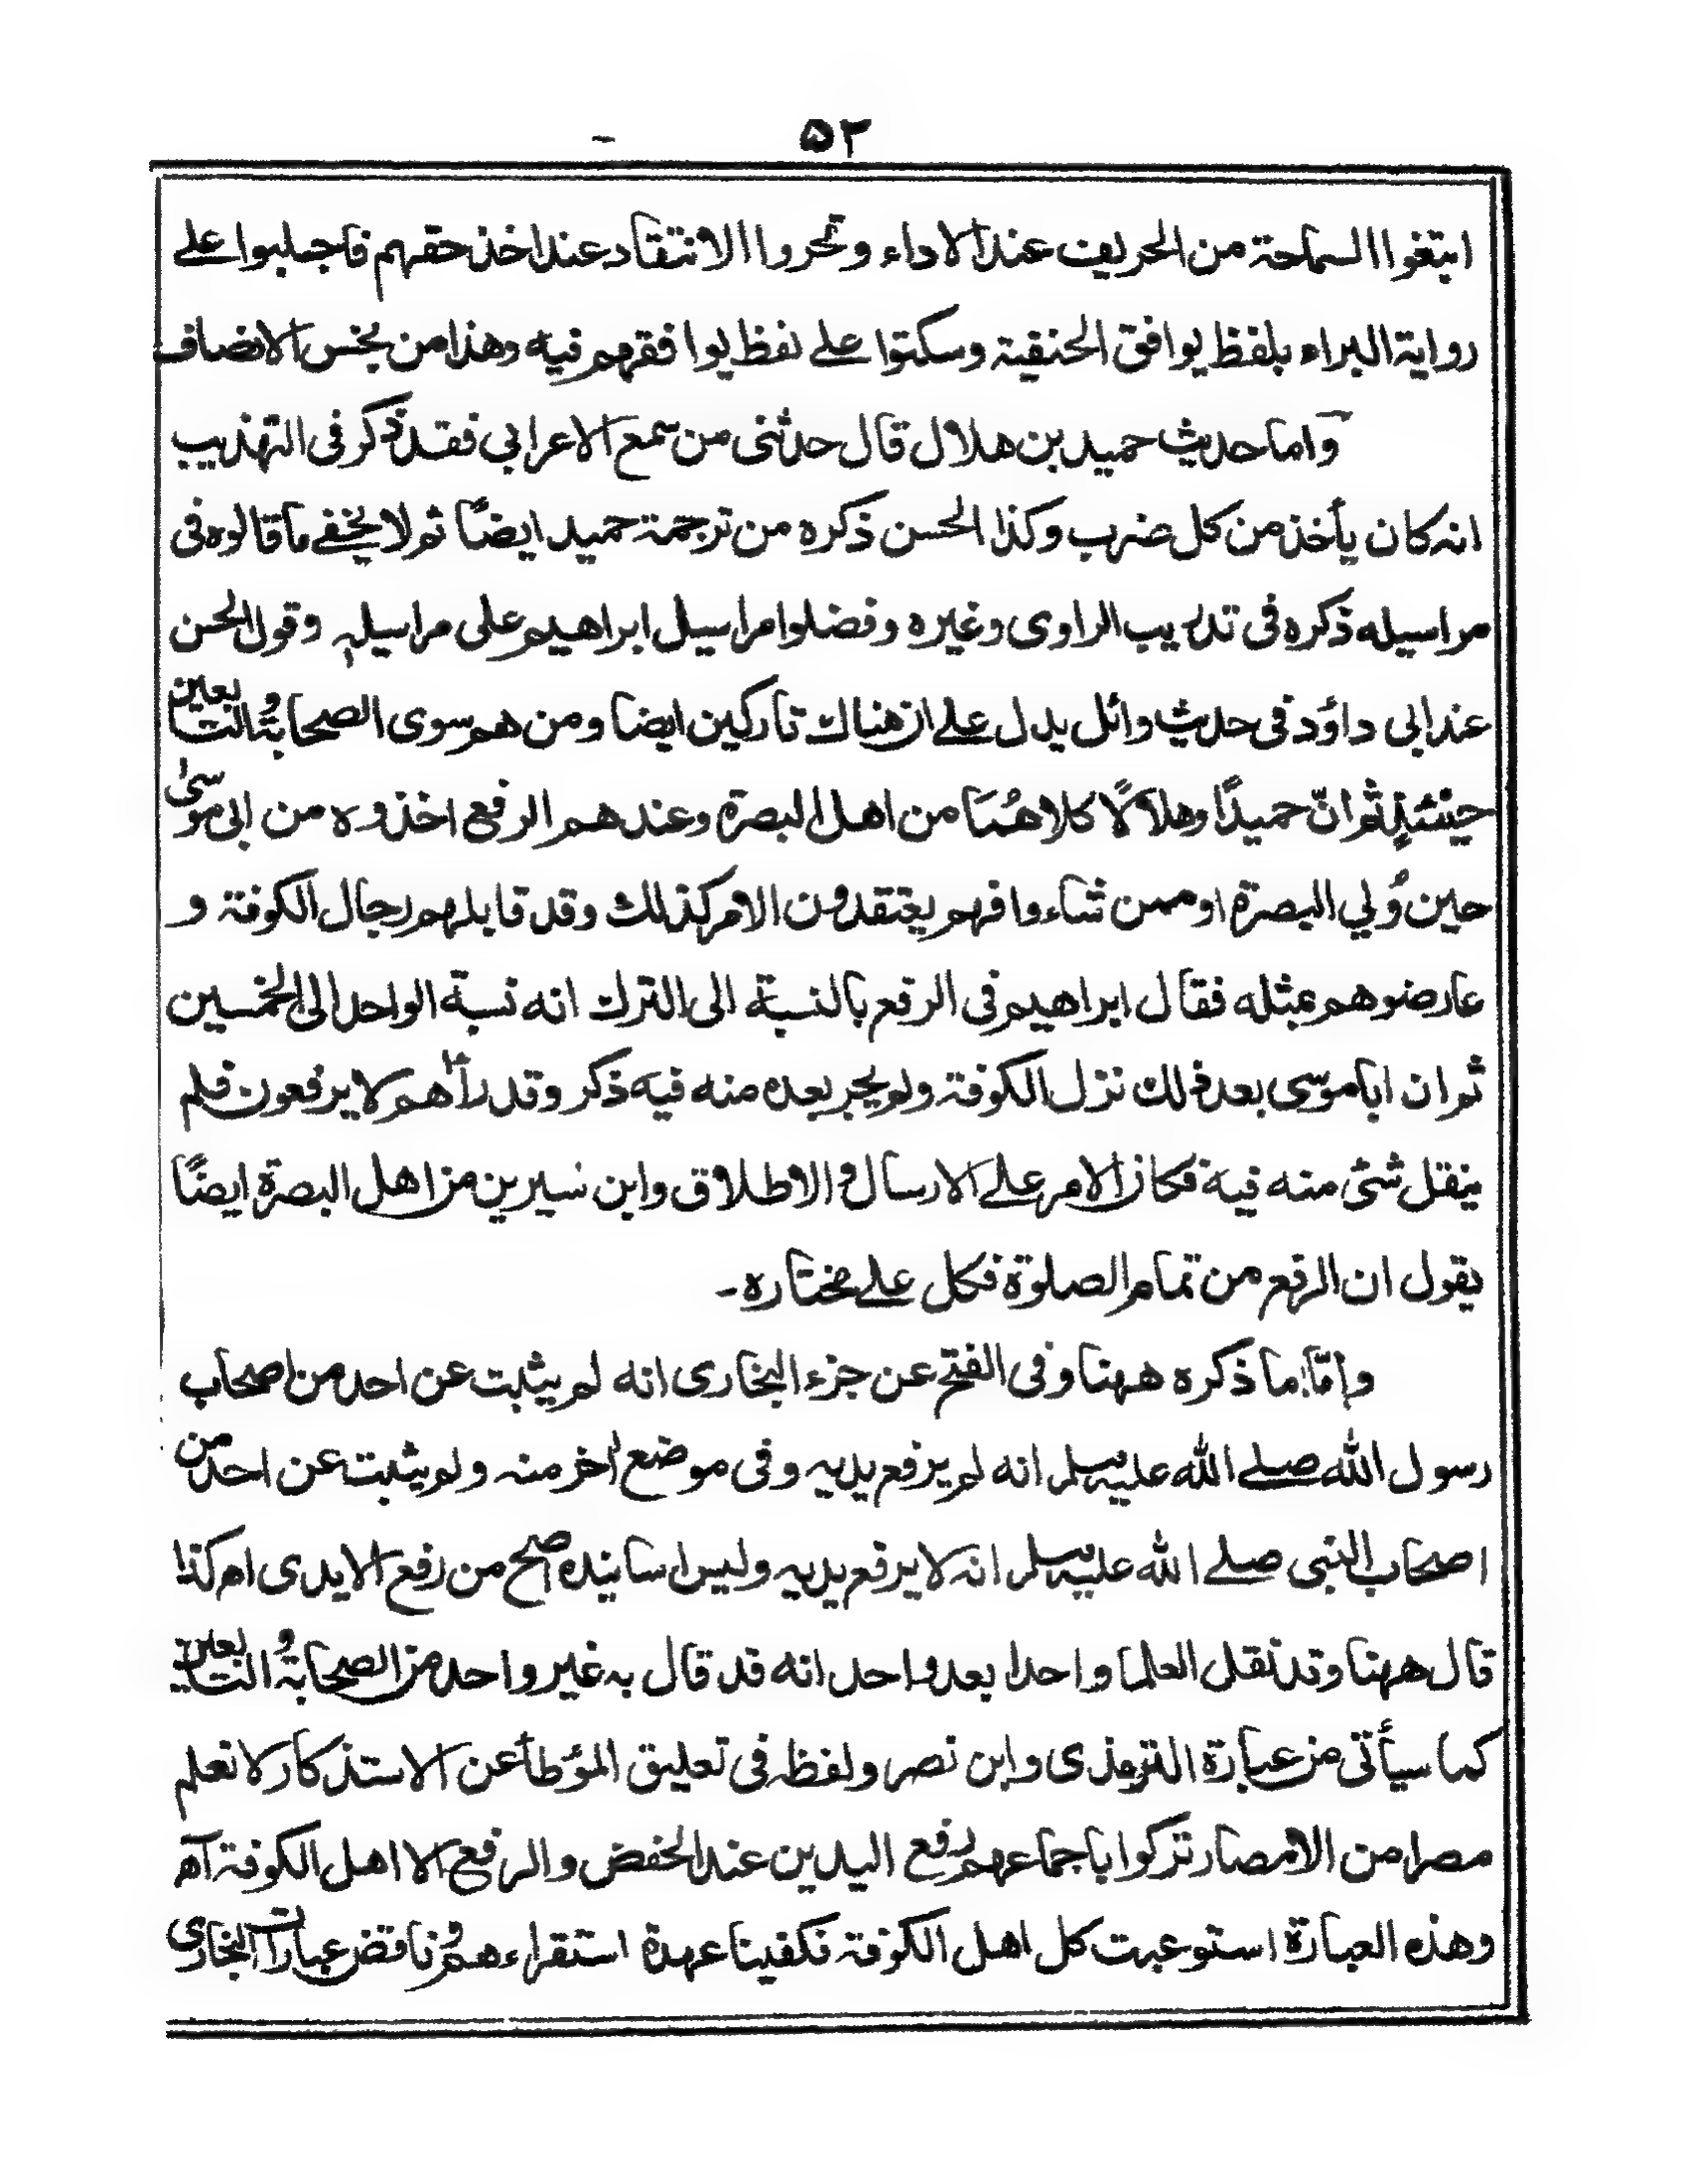 ۵۲
ابتغوا السماحة من الحريف عند الاداء وتحروا الانتقاد عند اخذ حقهم فاجلبوا على
رواية البراء بلفظ يوافق الحنفية وسكتوا على لفظ يوافقهم فيه وهذا من بخس الانصاف
واما حديث حميد بن هلال قال حدثنى من سمع الاعرابي فقد ذكر فى التهذيب
انه كان يأخذ من كل ضرب وكذا الحسن ذكره من ترجمة حميد ايضًا ثم لا يخفى ما قالوه فى
مراسيله ذكره فى تدريب الراوى وغيره وفضلوا مراسيل ابراهيم على مراسيله وقول الحسن
عند ابى داؤد فى حديث وائل يدل على ان هناك تاركين ايضا ومن هم سوى الصحابة والتابعين
حينئذٍ ثم انّ حميدًا وهلالًا كلاهُمَا من اهل البصرة وعندهم الرفع اخذوه من ابى موسىٰ
حين وُلي البصرة او ممن شاء وافهم يعتقدون الامر كذلك وقد قابلهم رجال الكوفة و
عارضوهم بمثله فقال ابراهيم فى الرفع بالنسبة الى الترك انه نسبة الواحد الى الخمسين
ثم ان ابا موسى بعد ذلك نزل الكوفة ولم يجر بعده منه فيه ذكر وقد رأهم لا يرفعون فلم
ينقل شئ منه فيه فكان الامر على الارسال والاطلاق وابن سيرين من اهل البصرة ايضًا
يقول ان الرفع من تمام الصلوة فكل على مختاره۔
وامّا ما ذكره ههنا وفى الفتح عن جزء البخارى انه لم يثبت عن احد من اصحاب
رسول الله صلے الله عليه وسلم انه لم يرفع يديه وفى موضع اٰخر منه ولم يثبت عن احد من
اصحاب النبى صلے الله عليه وسلم انه لا يرفع يديه وليس اسانيده اصح من رفع الايدى ام كذا
قال ههنا وقد نقل العلما واحدا بعد واحد انه قد قال به غير واحد من الصحابة والتابعين
كما سيأتى من عبارة الترمذى وابن نصر ولفظه فى تعليق المؤطأ عن الاستذكار لا نعلم
مصرا من الامصار تركوا باجماعهم رفع اليدين عند الخفض والرفع الا اهل الكوفة آه
وهذه العبارة استوعبت كل اهل الكوفة فكفينا عهدة استقراءهم وناقض عبارات البخارى